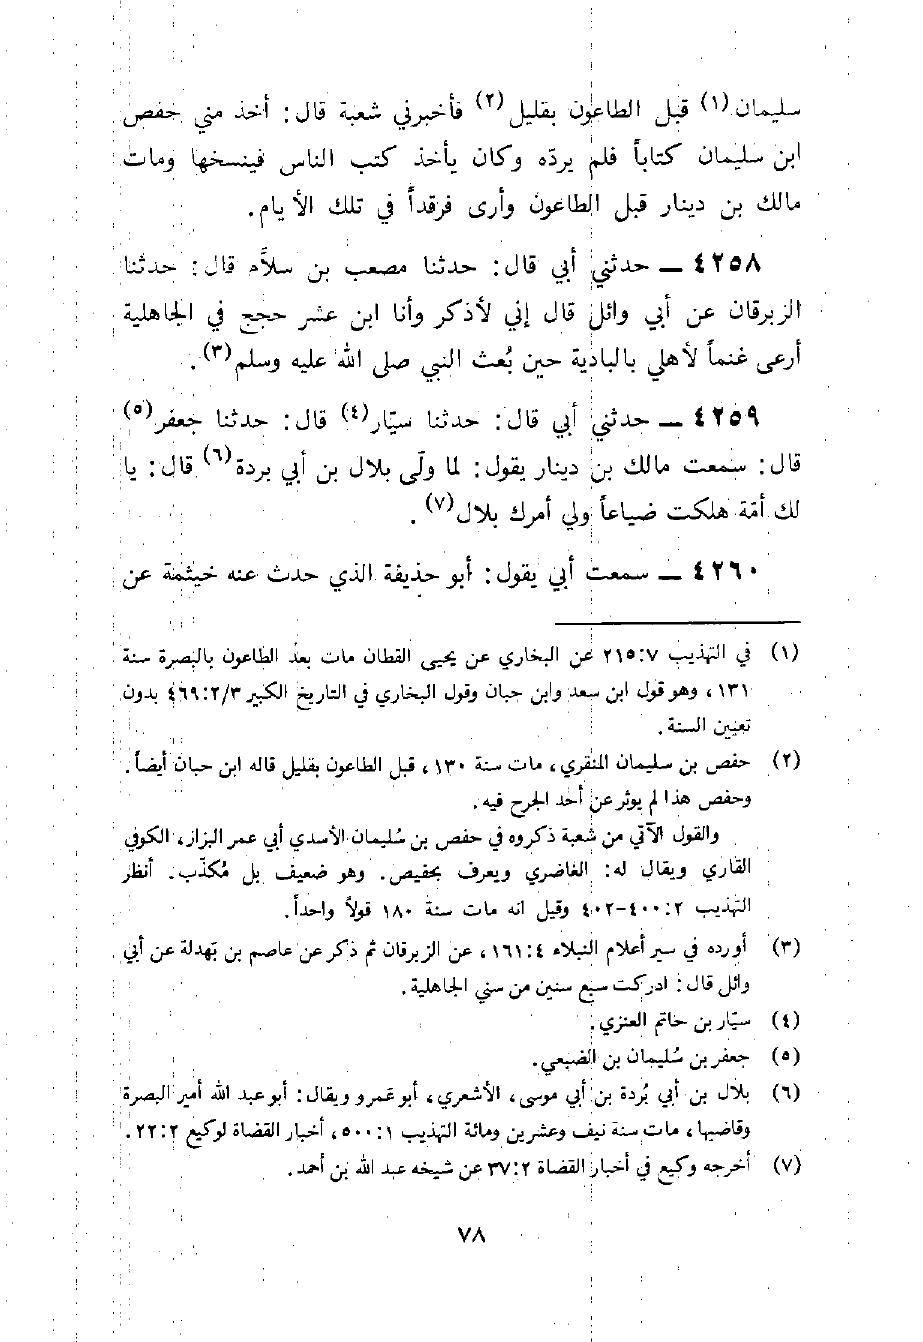 سليمان (١) قبل الطاعون بقليل (٢) فأخبرني شعبة قال : أخذ مني حفص
ابن سليمان كتاباً فلم يردّه وكان يأخذ كتب الناس فينسخها ومات
مالك بن دينار قبل الطاعون وأرى فرقداً في تلك الأيام.
٤٢٥٨ ــ حدثني أبي قال : حدثنا مصعب بن سلاّم قال : حدثنا
الزبرقان عن أبي وائل قال إني لأذكر وأنا ابن عشر حجج في الجاهلية
أرعى غنماً لأهلي بالبادية حين بُعث النبي صلى الله عليه وسلم (٣) .
٤٢٥٩ ــ حدثني أبي قال : حدثنا سيّار (٤) قال : حدثنا جعفر (٥)
قال : سمعت مالك بن دينار يقول : لما ولّى بلال بن أبي بردة (٦) قال : يا
لك أمّة هلكت ضياعاً ولي أمرك بلال (٧) .
٤٢٦٠ ــ سمعت أبي يقول : أبو حذيفة الذي حدث عنه خيثمة عن
(١) في التهذيب ٧ : ٢١٥ عن البخاري عن يحيى القطان مات بعد الطاعون بالبصرة سنة
١٣١ ، وهو قول ابن سعد وابن حبان وقول البخاري في التاريخ الكبير ٢/٣ : ٤٦٩ بدون
تعيين السنة .
(٢) حفص بن سليمان المنقري ، مات سنة ١٣٠ ، قبل الطاعون بقليل قاله ابن حبان أيضاً .
وحفص هذا لم يوثر عن أحد الجرح فيه .
والقول الآتي من شعبة ذكروه في حفص بن سُليمان الأسدي أبي عمر البزار، الكوفي
القاري ويقال له : الغاضري ويعرف بحفيص . وهو ضعيف بل مُكذّب . أنظر
التهذيب ٢ : ٤٠٠-٤٠٢ وقيل انه مات سنة ١٨٠ قولاً واحداً .
(٣) أورده في سير أعلام النبلاء ٤ : ١٦١ ، عن الزبرقان ثم ذكر عن عاصم بن بهدلة عن أبي
وائل قال : ادركت سبع سنين من سني الجاهلية .
(٤) سيّار بن حاتم العنزي .
(٥) جعفر بن سُليمان بن الضبعي .
(٦) بلال بن أبي بُردة بن أبي موسى ، الأشعري ، أبو عَمرو ويقال : أبو عبد الله أمير البصرة
وقاضيها ، مات سنة نيف وعشرين ومائة التهذيب ١ : ٥٠٠ ، أخبار القضاة لوكيع ٢ : ٢٢ .
(٧) أخرجه وكيع في أخبار القضاة ٢ : ٣٧ عن شيخه عبد الله بن أحمد .
٧٨